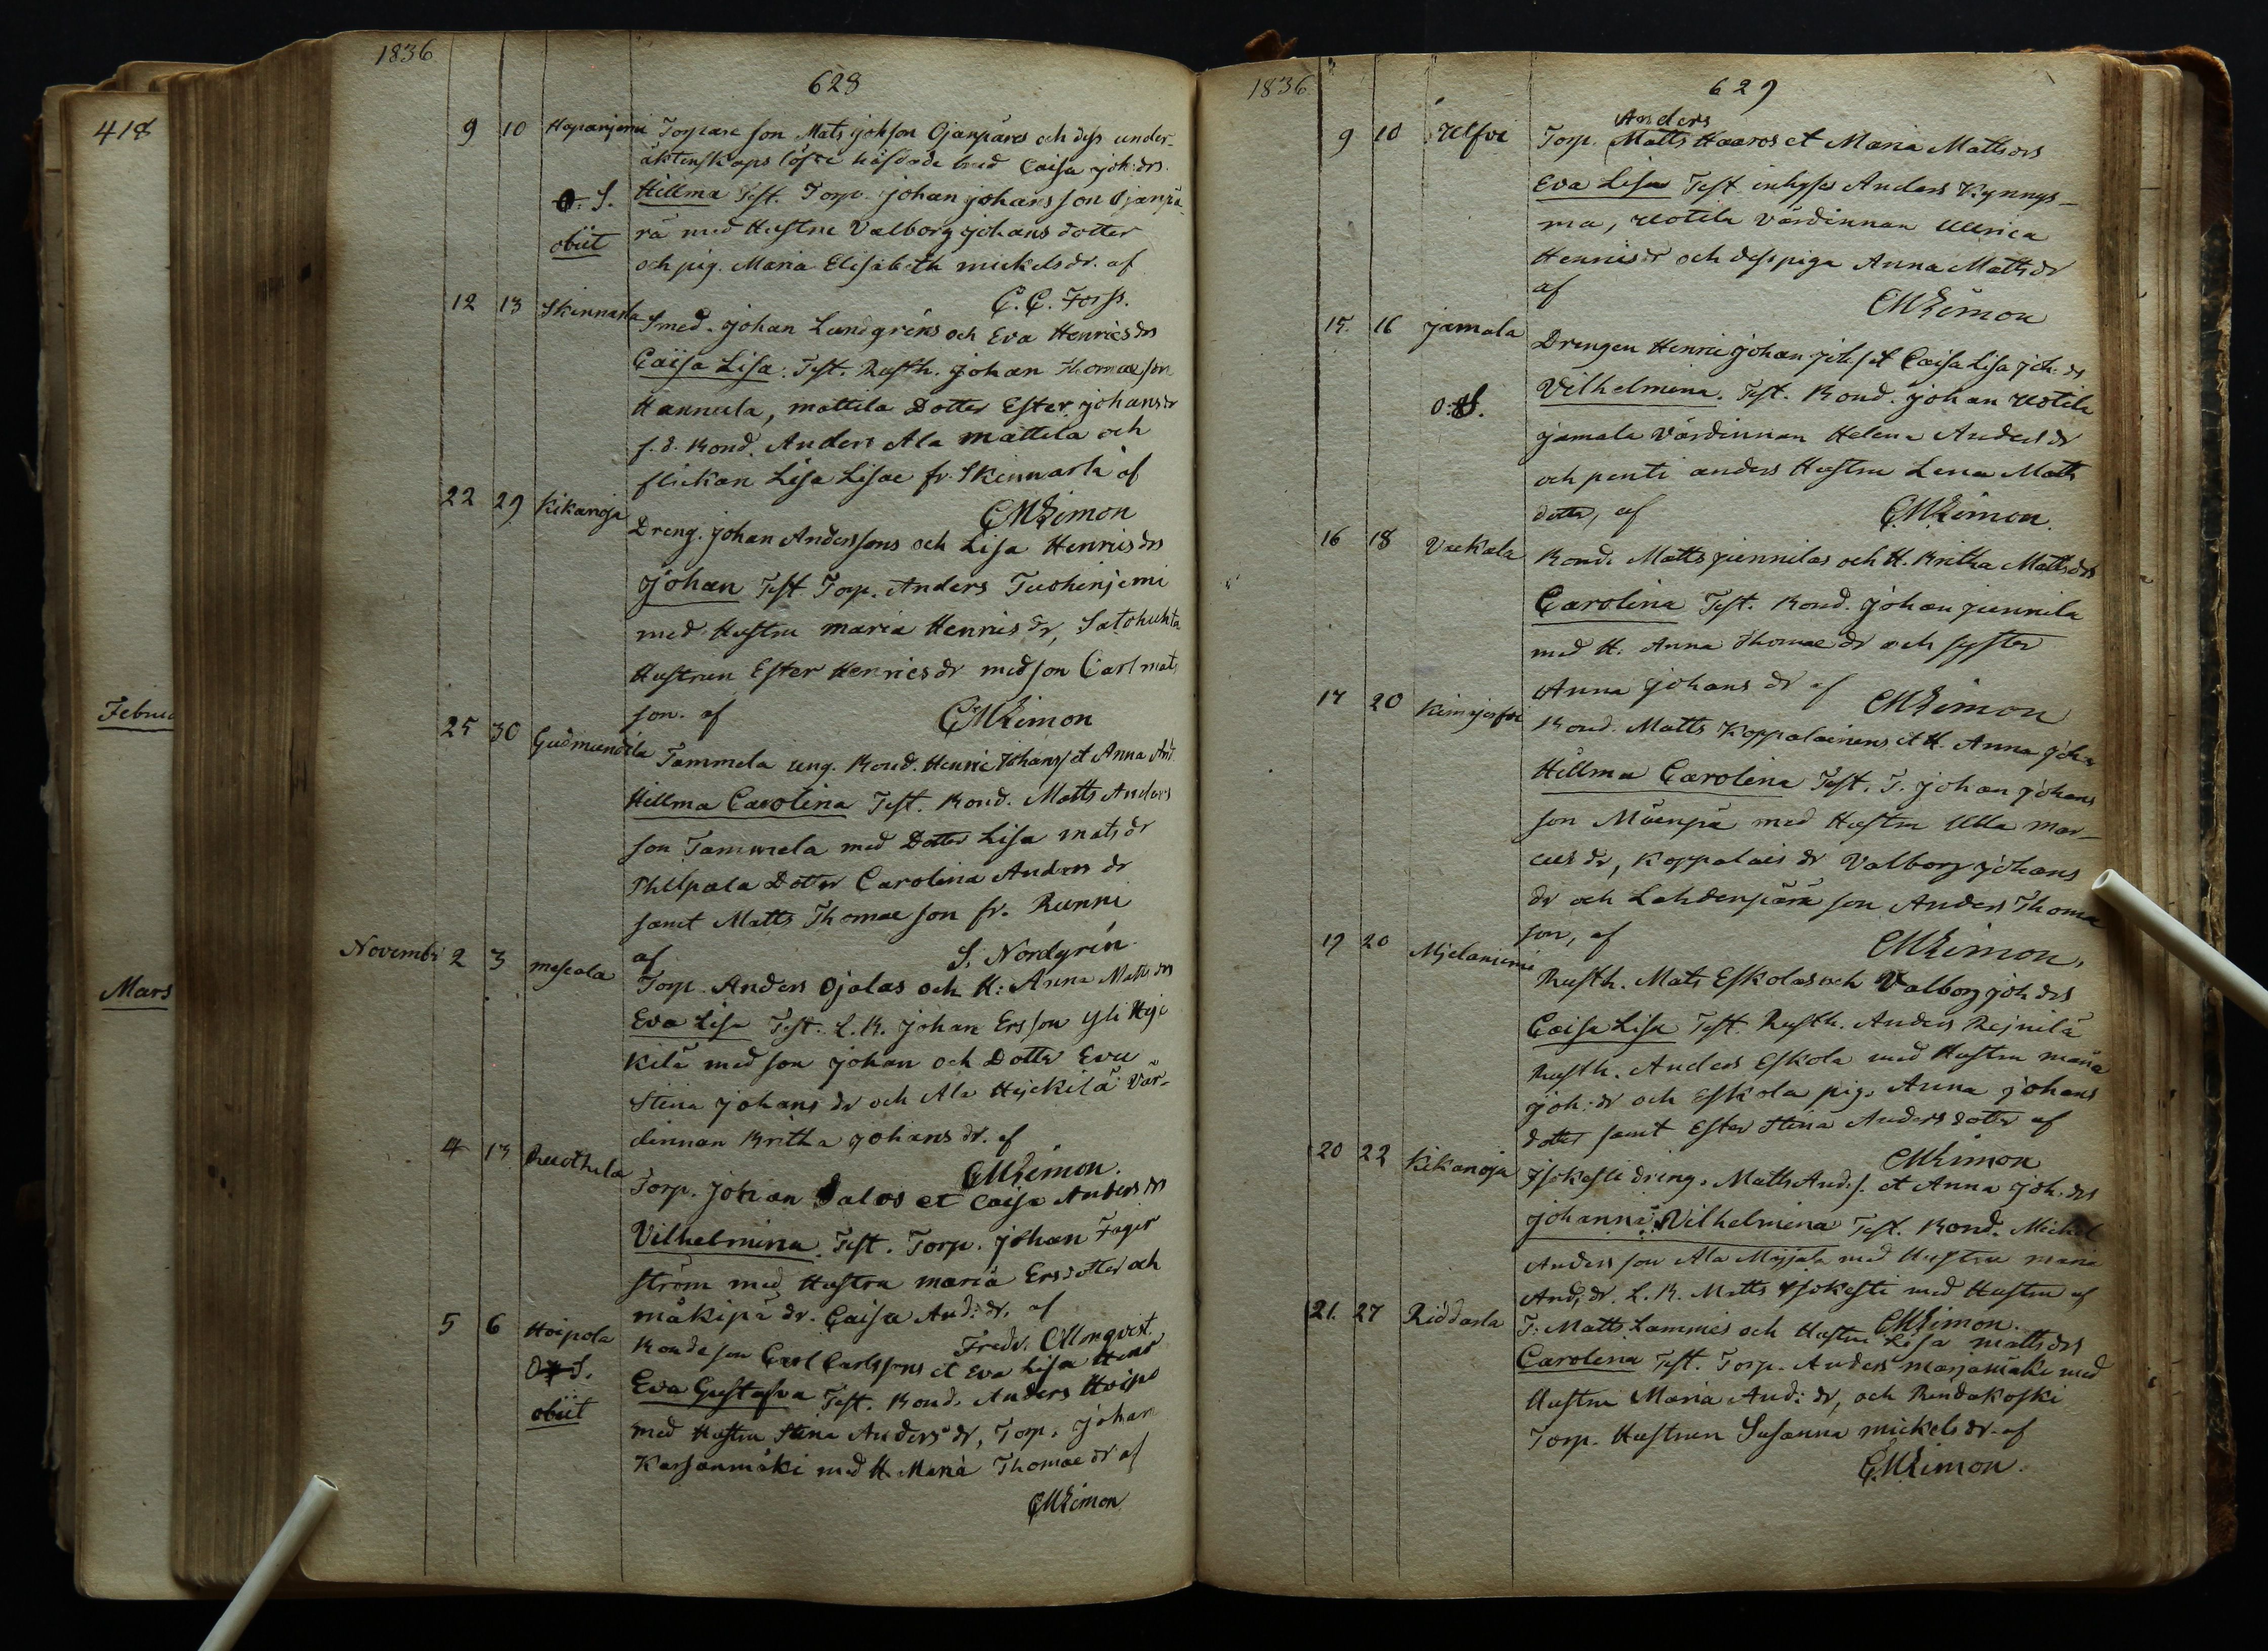 418
Februa
Mars
1836
628
9 10 Hapanjemi Torpare son Mats Johson Ojanpäres och dess under-
äktenskaps löfte häfdade hustr Caisa Joh:drs
O. S. Hillma Test. Torp. Johan Johansson Ojanpä-
obiit rä med Hustru Valborg Johans dotter
och pig. Maria Elisabeth mickelsdr. af
C. G. Forss.
12 13 Skinnarla Smed. Johan Lundgréns och Eva Henricsdrs
Caisa Lisa. Test. Rusth. Johan Thomaeson
Hannula, mattila Dotter Ester Johansdr
f.d. Bond. Anders Ala mattila och
flickan Lisa Lisae fr. Skinnarla af
CMLimon
22 29 Kikanoja Dreng. Johan Anderssons och Lisa Henricsdrs
Johan Test. Torp. Anders Tuohinjemi
med Hustru maria Henricsdr, Satohuhta
Hustrun Ester Henricsdr med son Carl mats
son. af CMLimon
25 30 Gudmundila Tammela ung. Bond. Henric Johans/ et Anna And
Hillma Carolina Test. Bond. Matts Anders
son Tammela med Dotter Lisa matsdr
Philpala Dotter Carolina Anders dr
samt Matts Thomae son fr. Runni
af S. Nordgrén
Novembr 2 3 mascala Torp. Anders Ojalas och H: Anna Matts drs
Eva Lisa Test. L.B. Johan Ersson Yli Heje
kilä med son Johan och Dotter Eva
Stina Johans dr och Ala Hejckilä Vär-
dinnan Britha Johans dr. af
CMLimon.
4 13 Ruothila Torp. Johan Salos et Caisa Anders drs
Vilhelmina. Test. Torp. Johan Fager
ström med Hustru maria Ersdotter och
mäkipä dr. Caisa And:dr. af
Fredr. Ollonqvist.
5 6 Hoipola Bonde son Carl Carlssons et Eva Lisa Henr
O S. Eva Gustafva Test. Bond. Anders Hoipo
obiit med Hustru Stina Anders dr, Torp. Johan
Karsanmäki med H. Maria Thomae dr af
CMLimon
1836
629
Anders
9 10 Ulfvi Torp. Matts Haaros et Maria Mattsdrs
Eva Lisa Test inhyses Anders Kynnys-
ma, Uotila värdinnan Ullrica
Henricsdr och dess piga Anna Mattsdr
af CMLimon
15. 16 Jamala Drengen Henric Johan Joh:s et Caisa Lisa Joh:drs
O. S. Vilhelmina. Test. Bond. Johan Uotila
Jamala Värdinnan Helena Andersdr
och penti anders Hustru Lena Matts
dotter, af CMLimon.
16 18 Vuckala Bond. Matts Junnilas och H. Britha Mattsdrs
Carolina Test. Bond. Johan Junnila
med H. Anna Thomae dr och syster
Anna Johans dr af CMLimon
17 20 Kimijerfvi Bond. Matts Koppalainens et H. Anna Joh:
Hillma Carolina Test. T. Johan Johans
son Mäenpä med Hustru Ulla mar-
cus dr, Koppalais dr Valborg Johans
dr och Lahdenpärä son Anders Thoma
son, af CMLimon.
19 20 Mjelaniemi Rusth. Mats Eskolas och Valborg Joh drs
Caisa Lisa Test. Rusth. Anders Rejnilä
Rusth. Anders Eskola med Hustru maria
Joh:dr och Eskola pig. Anna Johans
dotter samt Ester Stina Anders dotter af
CMLimon
20 22 Kikanoja Isokesti dreng. Matts Ands. et Anna Joh:drs
Johanna Vilhelmina Test. Bond. Michel
Anders son Ala Myjala med Hustru maria
And:dr. L.B. Matts Isokesti med Hustru af
CMLimon.
21. 27 Riddarla T: Matts Lammis och Hustru Lisa mattsdrs
Carolina Test. Torp. Anders marjamäki med
Hustru Maria And: dr, och Rendakoski
Torp. Hustrun Susanna mickelsdr. af
CMLimon.